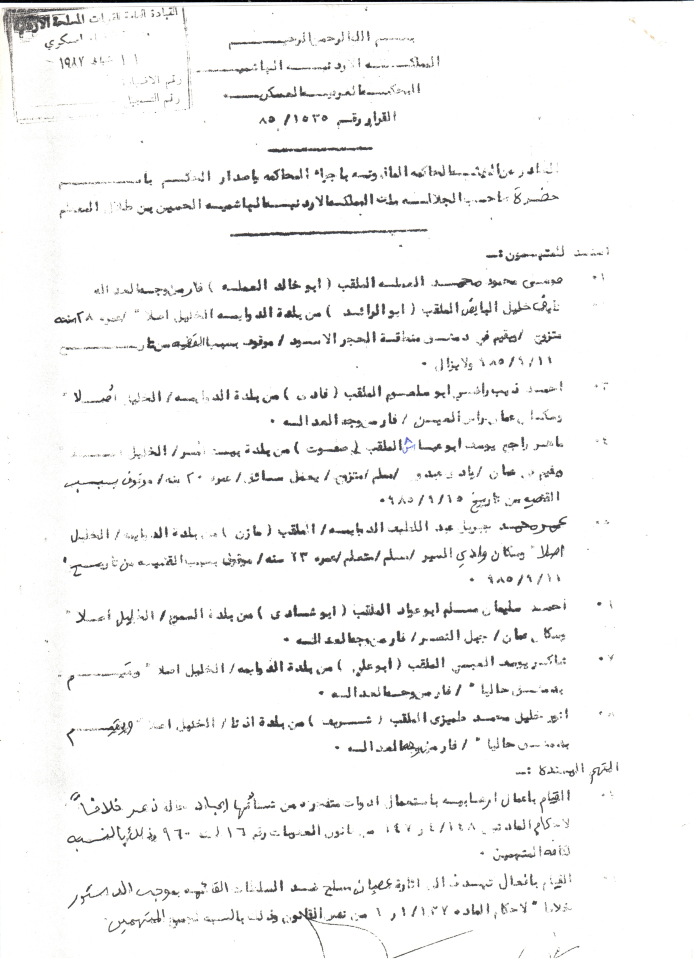 القيادة العامة للقوات المسلحة الأردنية
١٩٨٧
رقم
رقم التسجيل
بسم الله الرحمن الرحيم
المملكة الاردنية الهاشمية
المحكمة العرفية العسكرية
القرار رقم ١٥٣٥/ ٨٥
الصادر عن المحاكمه الماذونه باجراء المحاكمه باصدار الحكم باسم
حضرة صاحب الجلالة ملك المملكة الاردنية الهاشميه الحسين بن طلال المعظم
المتهمون :ـ
٠١ موسى محمود محمد العمله الملقب ( ابو خالد العمله ) فار من وجه العداله
خليل البايض الملقب ( ابو الرائد ) من بلدة الدوايمه الخليل اصلا" /عمره ٢٨ سنه
متزوج /ومقيم في دمشق منطقة الحجر الاسود / موقوف بسبب القضيه من تاريخ
٩٨٥/٩/١١ ولا يزال ٠
٠٣ احمد ذيب ابو ملصوم الملقب ( فادى ) من بلدة الدوايمه/ الخليل أصلا"
وسكان عمان راس العين / فار من وجه العدالة ٠
٠٤ ماهر راجح يوسف ابو عياش الملقب ( صفوت ) من بلدة بيت أمر/ الخليل
ومقيم في عمان / /مسلم/متزوج/ يعمل سائق/ عمره ٢٠ سنه/ موقوف بسبب
القضيه من تاريخ ٩٨٥/٩/١٥٠
٠٥ محمد جبريل عبد الدوايمه/ الملقب ( مازن ) من بلدة الدوايمه/ الخليل
اصلا" وسكان وادي السير /مسلم/متعلم/عمره ٢٣ سنه/ موقوف بسبب القضيه من تاريخ
٩٨٥/٩/١١ ٠
٠٦ احمد سليمان مسلم ابو عواد الملقب ( ابو شادى ) من بلدة السموع/ الخليل أصلا"
وسكان عمان/ جبل النصر/ فار من وجه العدالة ٠
٠٧ شاكر يوسف العبسي الملقب ( ابو علي ) من بلدة الدوايمه/ الخليل اصلا" ومقيم
بدمشق حاليا" / فار من وجه العدالة ٠
٠٨ خليل محمد طميزى الملقب ( شريف ) من بلدة اذنا/ الخليل اصلا" ومقيم
بدمشق حاليا" / فار من وجه العدالة ٠
التهم المسندة :ـ
القيام باعمال ارهابيه باستعمال ادوات متفجره من شأنها ايجاد حاله ذعر خلافاً
لاحكام المادتين ٤/١٤٨ و ١٤٧ من قانون العقوبات رقم ١٦ لسنه ٩٦٠ وذلك بالنسبه
لكافة المتهمين ٠
القيام بافعال تهدف الى اثارة عصيان مسلح ضد السلطات القائمه بموجب الدستور
خلافا" لاحكام الماده ١/١٣٧ و ١ من نفس القانون وذلك بالنسبه لجميع المتهمين